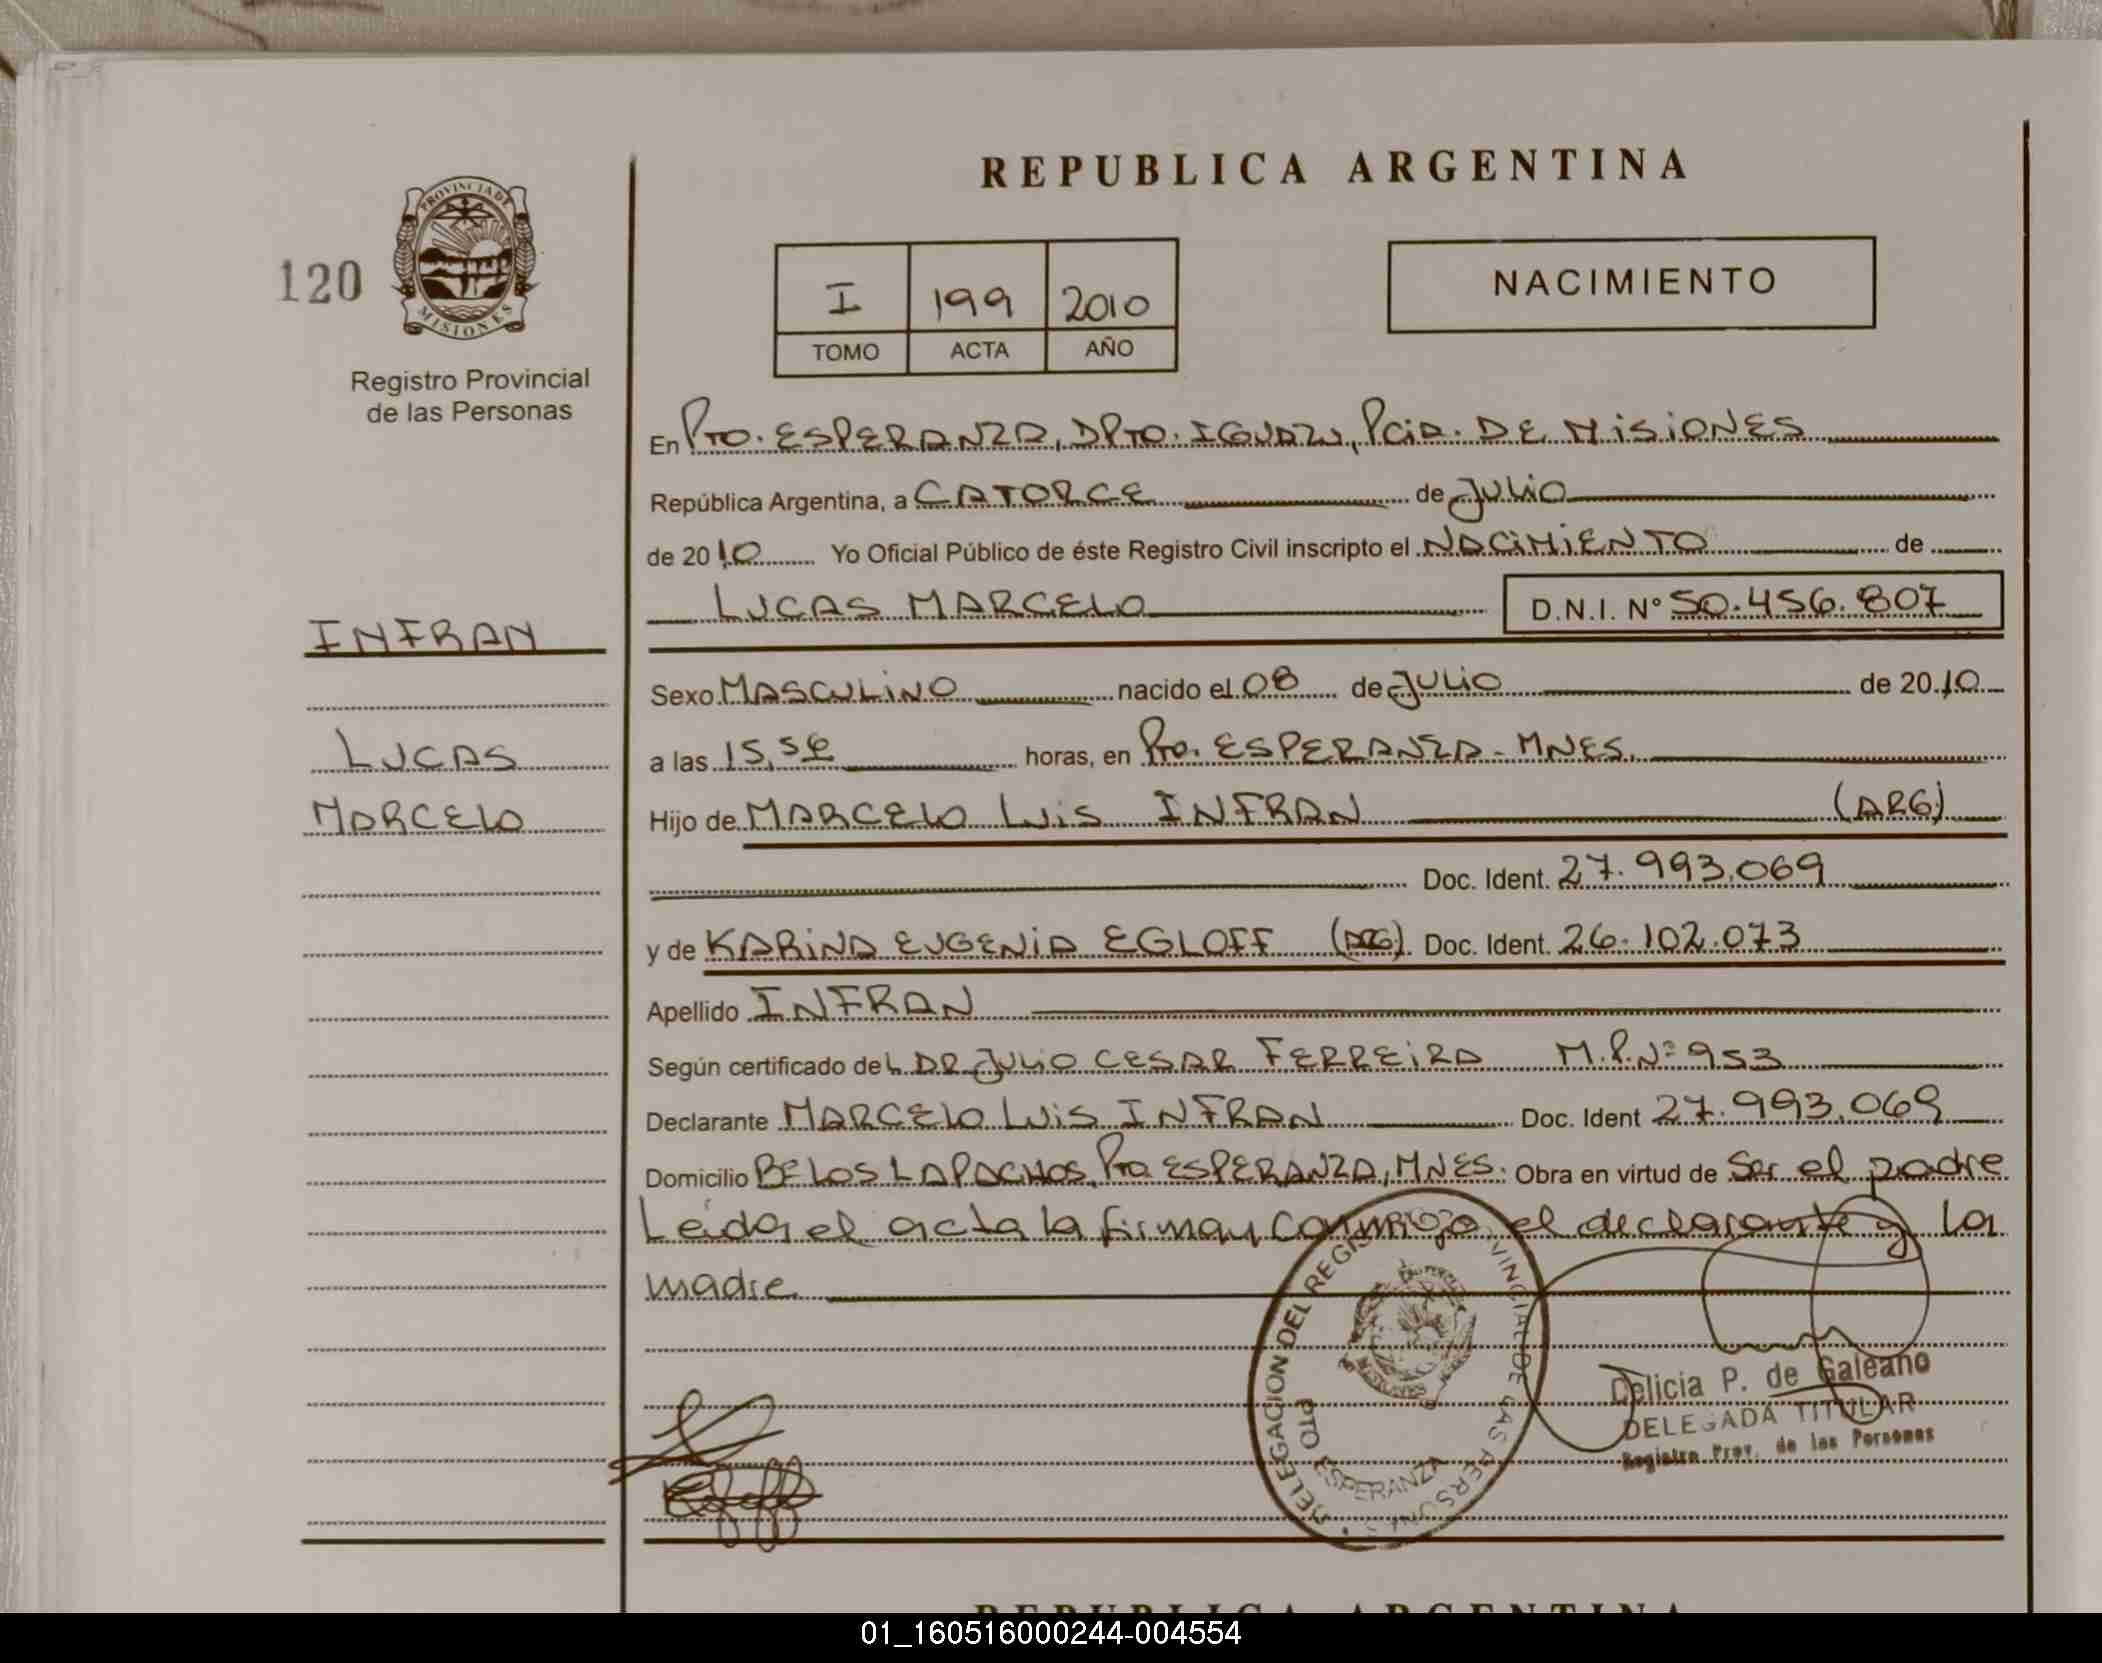 REPUBLICA ARGENTINA
120
PROVINCIA DE
MISIONES
Registro Provincial
de las Personas
I 199 2010
TOMO ACTA AÑO
NACIMIENTO
En Pto. ESPERANZA, DPTO. IGUAZU, PCIA. DE MISIONES
República Argentina, a CATORCE de JULIO
de 2010 Yo Oficial Público de éste Registro Civil inscripto el NACIMIENTO de
LUCAS MARCELO D.N.I. Nº 50.456.807
INFRAN
LUCAS
MARCELO
Sexo MASCULINO nacido el 08 de JULIO de 2010
a las 15,56 horas, en Pto. ESPERANZA - MNES.
Hijo de MARCELO LUIS INFRAN (ARG)
Doc. Ident. 27.993.069
y de KARINA EUGENIA EGLOFF (ARG) Doc. Ident. 26.102.073
Apellido INFRAN
Según certificado del DR JULIO CESAR FERREIRA M.P.Nº 953
Declarante MARCELO LUIS INFRAN Doc. Ident 27.993.069
Domicilio Bº LOS LAPACHOS, Pto ESPERANZA, MNES. Obra en virtud de Ser el padre
Leída el acta la firman conmigo el declarante y la
madre
DELEGACION DEL REGISTRO PROVINCIAL DE LAS PERSONAS
PTO ESPERANZA
Delicia P. de Galeano
DELEGADA TITULAR
Registro Prov. de las Personas
REPUBLICA ARGENTINA
01_160516000244-004554